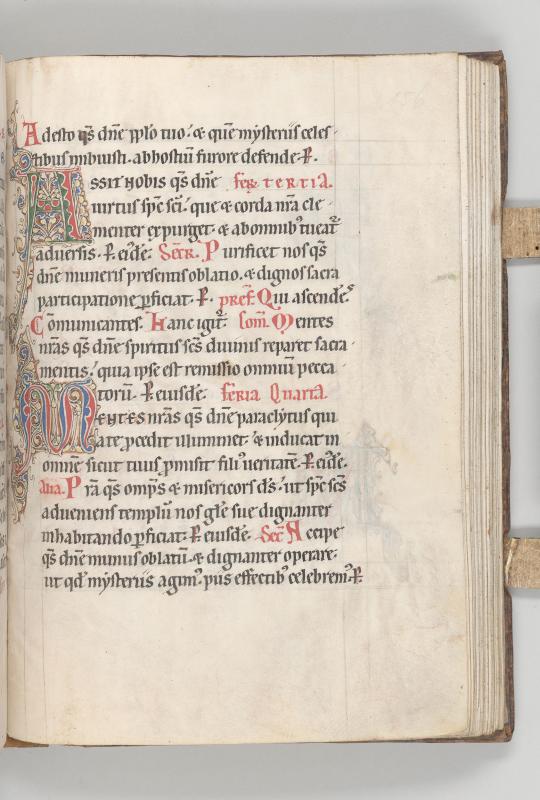 Adesto q̄s dn̄e pp̄lo tuo. & que᷎ mẏsteriis celes-
tibus imbuisti. ab hostiū furore defende. P.
ASSIT NOBIS q̄s dn̄e feR TERTIA.
uirtus sp̄c sc̄i. que & corda nr̄a cle-
menter expurget. & ab omnib; tueat᷑
aduersis. P. eide᷎. Secr̄. Purificet nos q̄s
dn̄e muneris presentis oblatio. & dignos sacra
participatione ꝑficiat. P. pref. Qui ascende᷎s
Cōmunicantes. Hanc igit᷑. Com̄. Mentes
nr̄as q̄s dn̄e spiritus sc̄s diuinus reparet sacra-
mentis. quia ipse est remissio omniū pecca-
torū. P. eiusde᷎. feria Quarta.
MENTES nr̄as q̄s dn̄e paraclẏtus qui
a te ꝓcedit illuminet. & inducat in
omnē sicut tuus ꝓmisit filiꝰ ueritatē. P. eide᷎.
Alia. Pr̄a q̄s omp̄s & misericors d̄s. ut sp̄c sc̄s
adueniens templū nos gl̄e sue dignanter
inhabitando ꝑficiat. P. eiusde᷎. Secr̄ Accipe
q̄s dn̄e munus oblatū. & dignanter operare.
ut qd̄ mẏsteriis agimꝰ. piis effectibꝰ celebremꝰ. P.